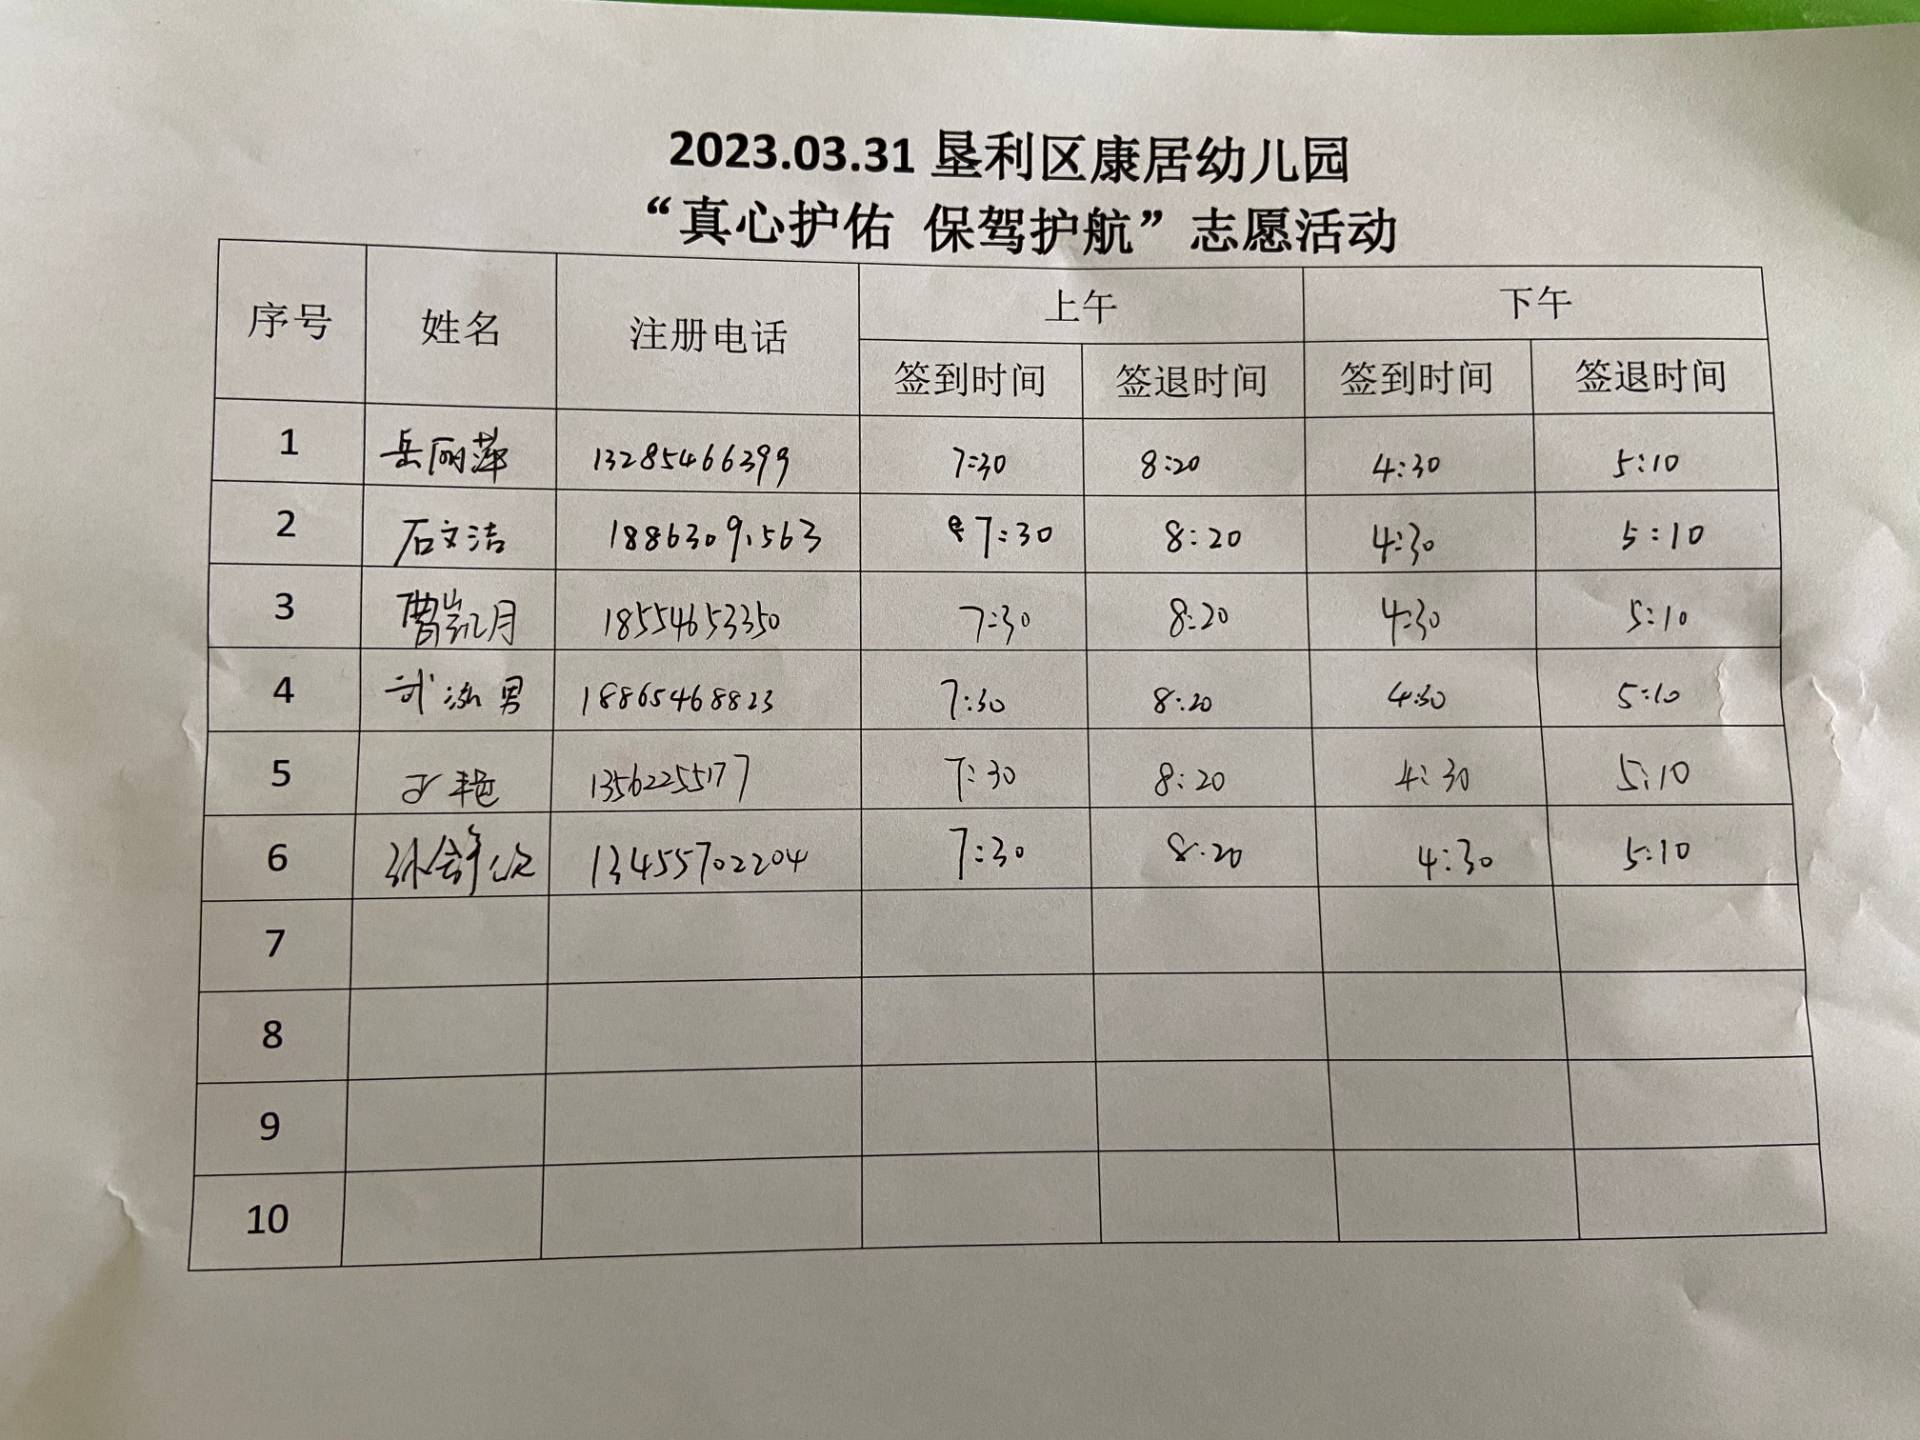 2023.03.31 垦利区康居幼儿园
“真心护佑 保驾护航”志愿活动
序号 姓名 注册电话 上午 下午
签到时间 签退时间 签到时间 签退时间
1 岳丽萍 13285466399 7:30 8:20 4:30 5:10
2 石文洁 18863091563 7:30 8:20 4:30 5:10
3 曹凯月 18554653350 7:30 8:20 4:30 5:10
4 武泓男 18865468823 7:30 8:20 4:30 5:10
5 13562255177 7:30 8:20 4:30 5:10
6 13455702204 7:30 8:20 4:30 5:10
7
8
9
10